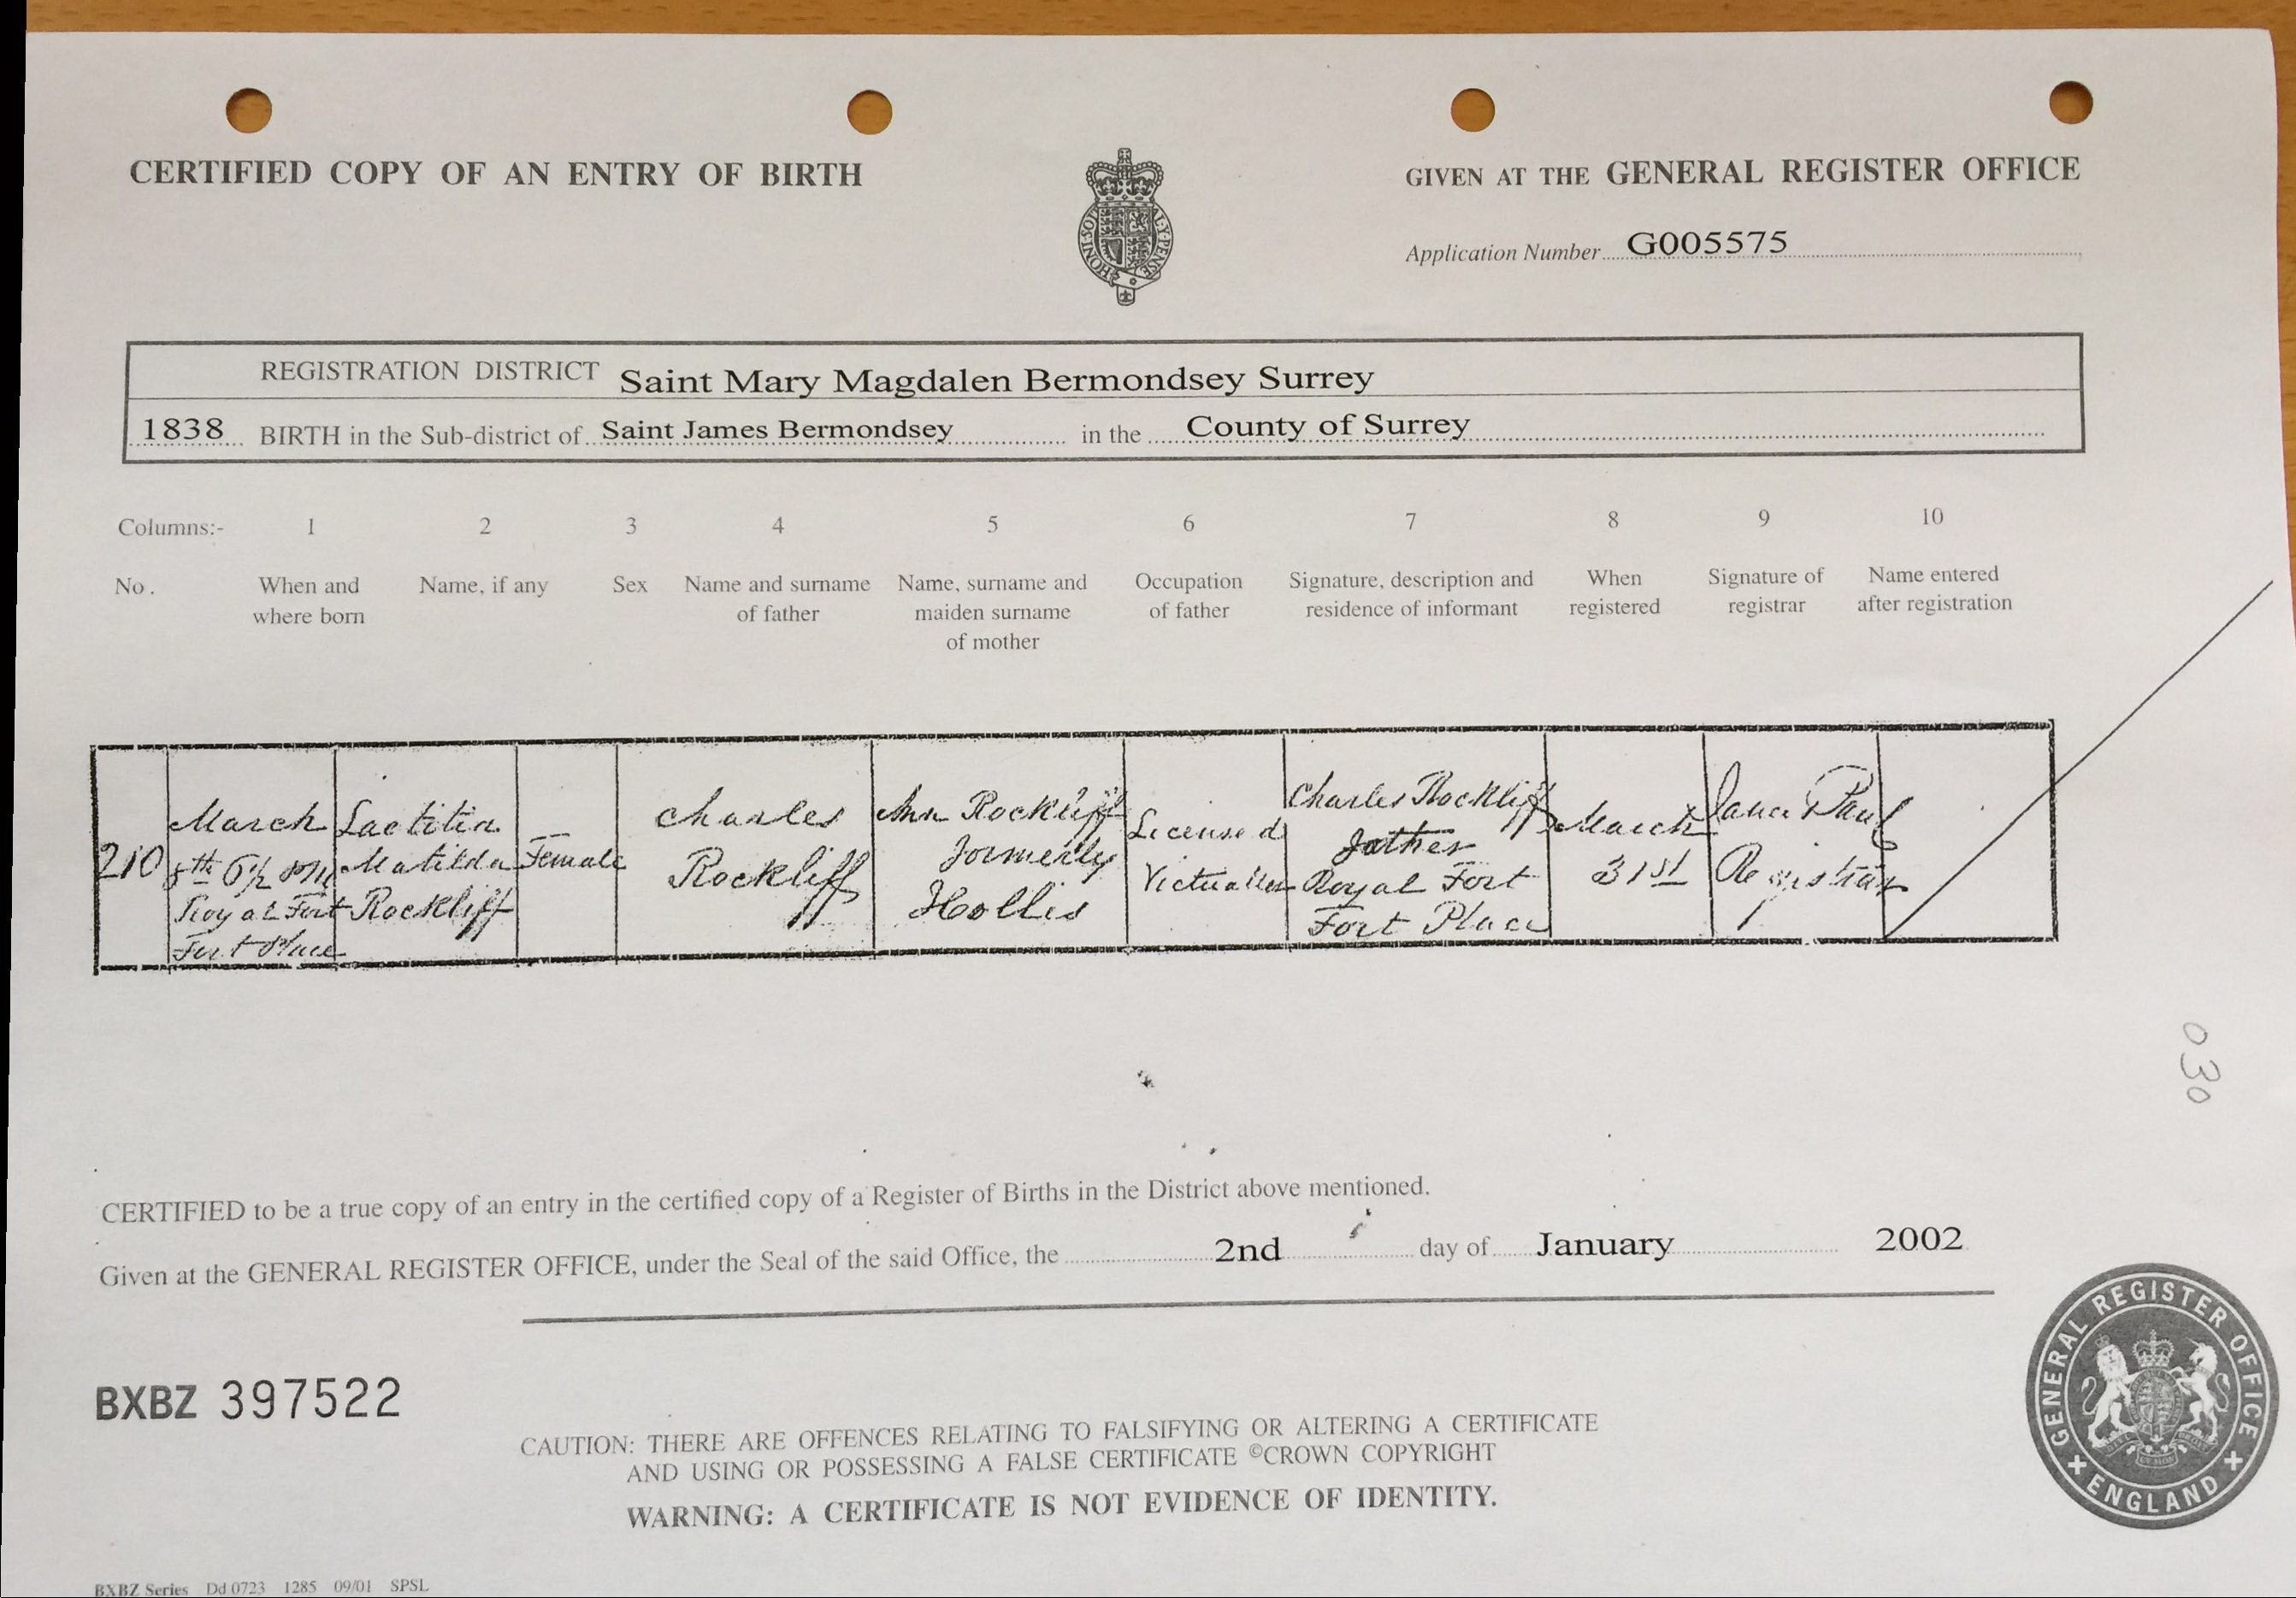 CERTIFIED COPY OF AN ENTRY OF BIRTH
GIVEN AT THE GENERAL REGISTER OFFICE
HONI SOIT
MAL Y PENSE
Application Number G005575
REGISTRATION DISTRICT Saint Mary Magdalen Bermondsey Surrey
1838 BIRTH in the Sub-district of Saint James Bermondsey in the County of Surrey
Columns:- 1 2 3 4 5 6 7 8 9 10
No.
When and
where born
Name, if any
Sex
Name and surname
of father
Name, surname and
maiden surname
of mother
Occupation
of father
Signature, description and
residence of informant
When
registered
Signature of
registrar
Name entered
after registration
210
March
8th 6½ PM
Royal Fort
Fort Place
Laetitia
Matilda
Rockliff
Female
Charles
Rockliff
Ann Rockliff
formerly
Hollis
Licensed
Victualler
Charles Rockliff
father
Royal Fort
Fort Place
March
31st
Paul
Registrar
030
CERTIFIED to be a true copy of an entry in the certified copy of a Register of Births in the District above mentioned.
Given at the GENERAL REGISTER OFFICE, under the Seal of the said Office, the 2nd day of January 2002
BXBZ 397522
CAUTION: THERE ARE OFFENCES RELATING TO FALSIFYING OR ALTERING A CERTIFICATE
AND USING OR POSSESSING A FALSE CERTIFICATE ©CROWN COPYRIGHT
WARNING: A CERTIFICATE IS NOT EVIDENCE OF IDENTITY.
GENERAL REGISTER OFFICE
ENGLAND
BXBZ Series Dd 0723 1285 09/01 SPSL